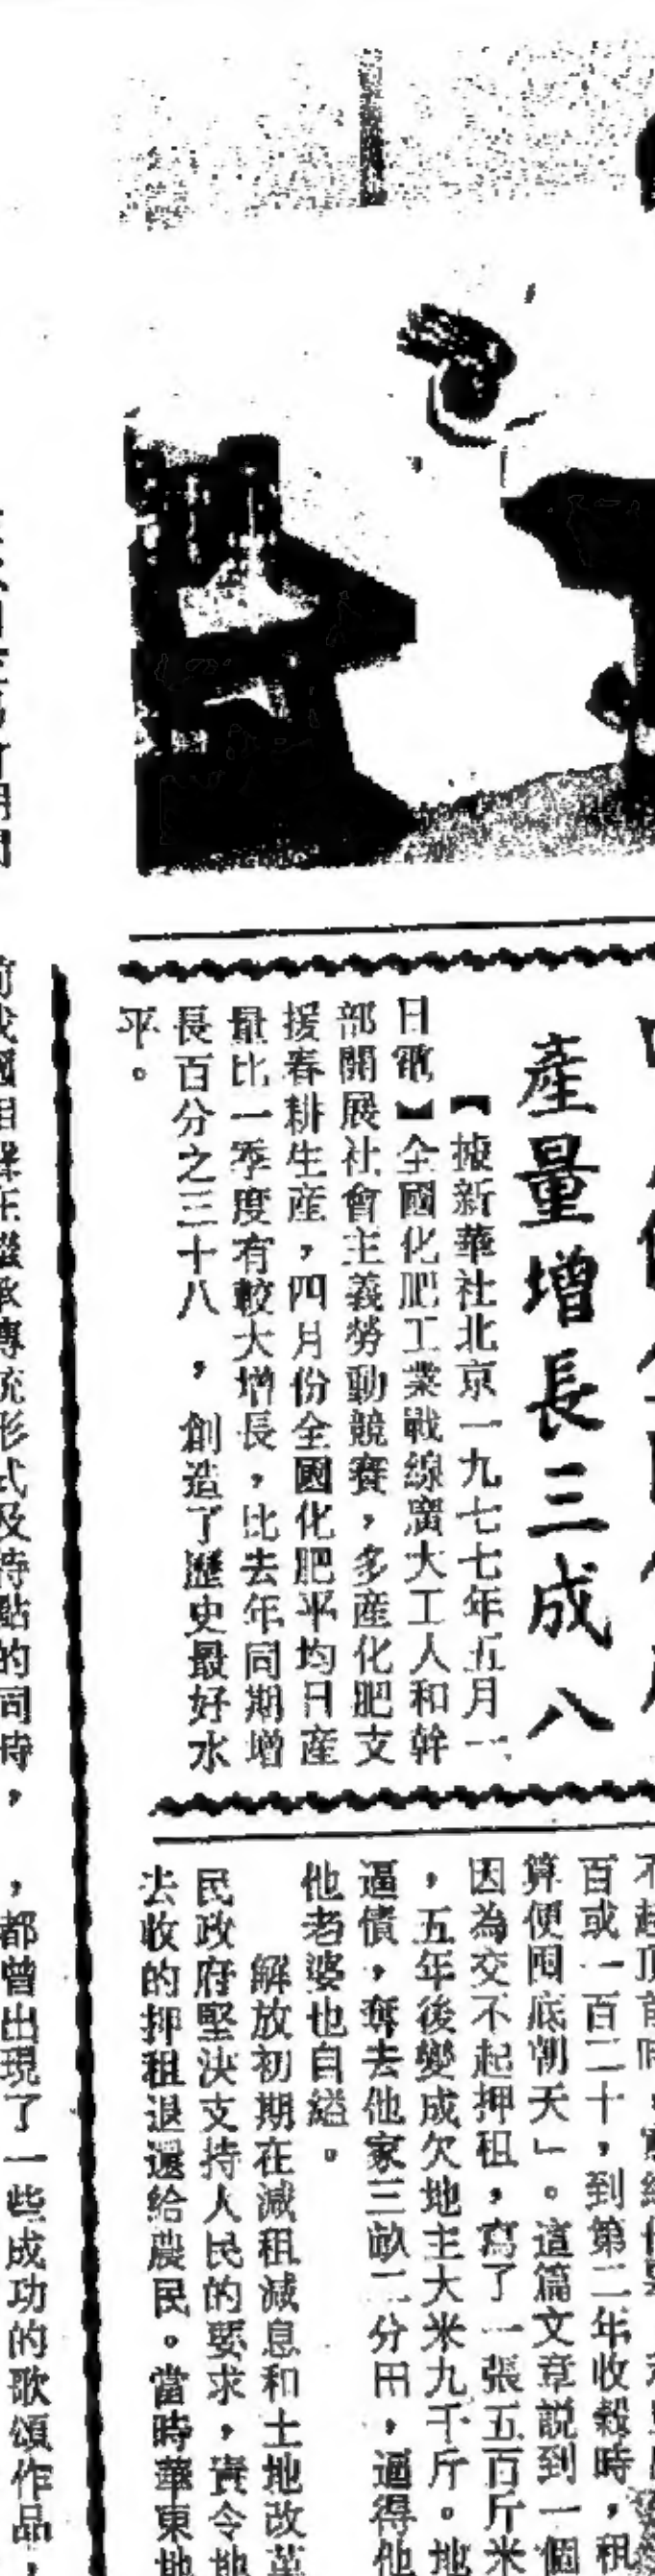 產量增長三成八
【據新華社北京一九七七年五月一
日電】全國化肥工業戰線廣大工人和幹
部開展社會主義勞動競賽，多産化肥支
援春耕生産，四月份全國化肥平均日産
量比一季度有較大增長，比去年同期增
長百分之三十八，創造了歷史最好水
平。
百或一百二十，到第二年收穀時，租
算便囤底朝天」。這篇文章説到一個
因為交不起押租，寫了一張五百斤米
，五年後變成欠地主大米九千斤。地
逼債，奪去他家三畝二分田，逼得他
他老婆也自縊。
解放初期在減租減息和土地改革
民政府堅決支持人民的要求，責令地
去收的押租退還給農民。當時華東地
承傳統形式及特點的同時，
，都曾出現了一些成功的歌頌作品，